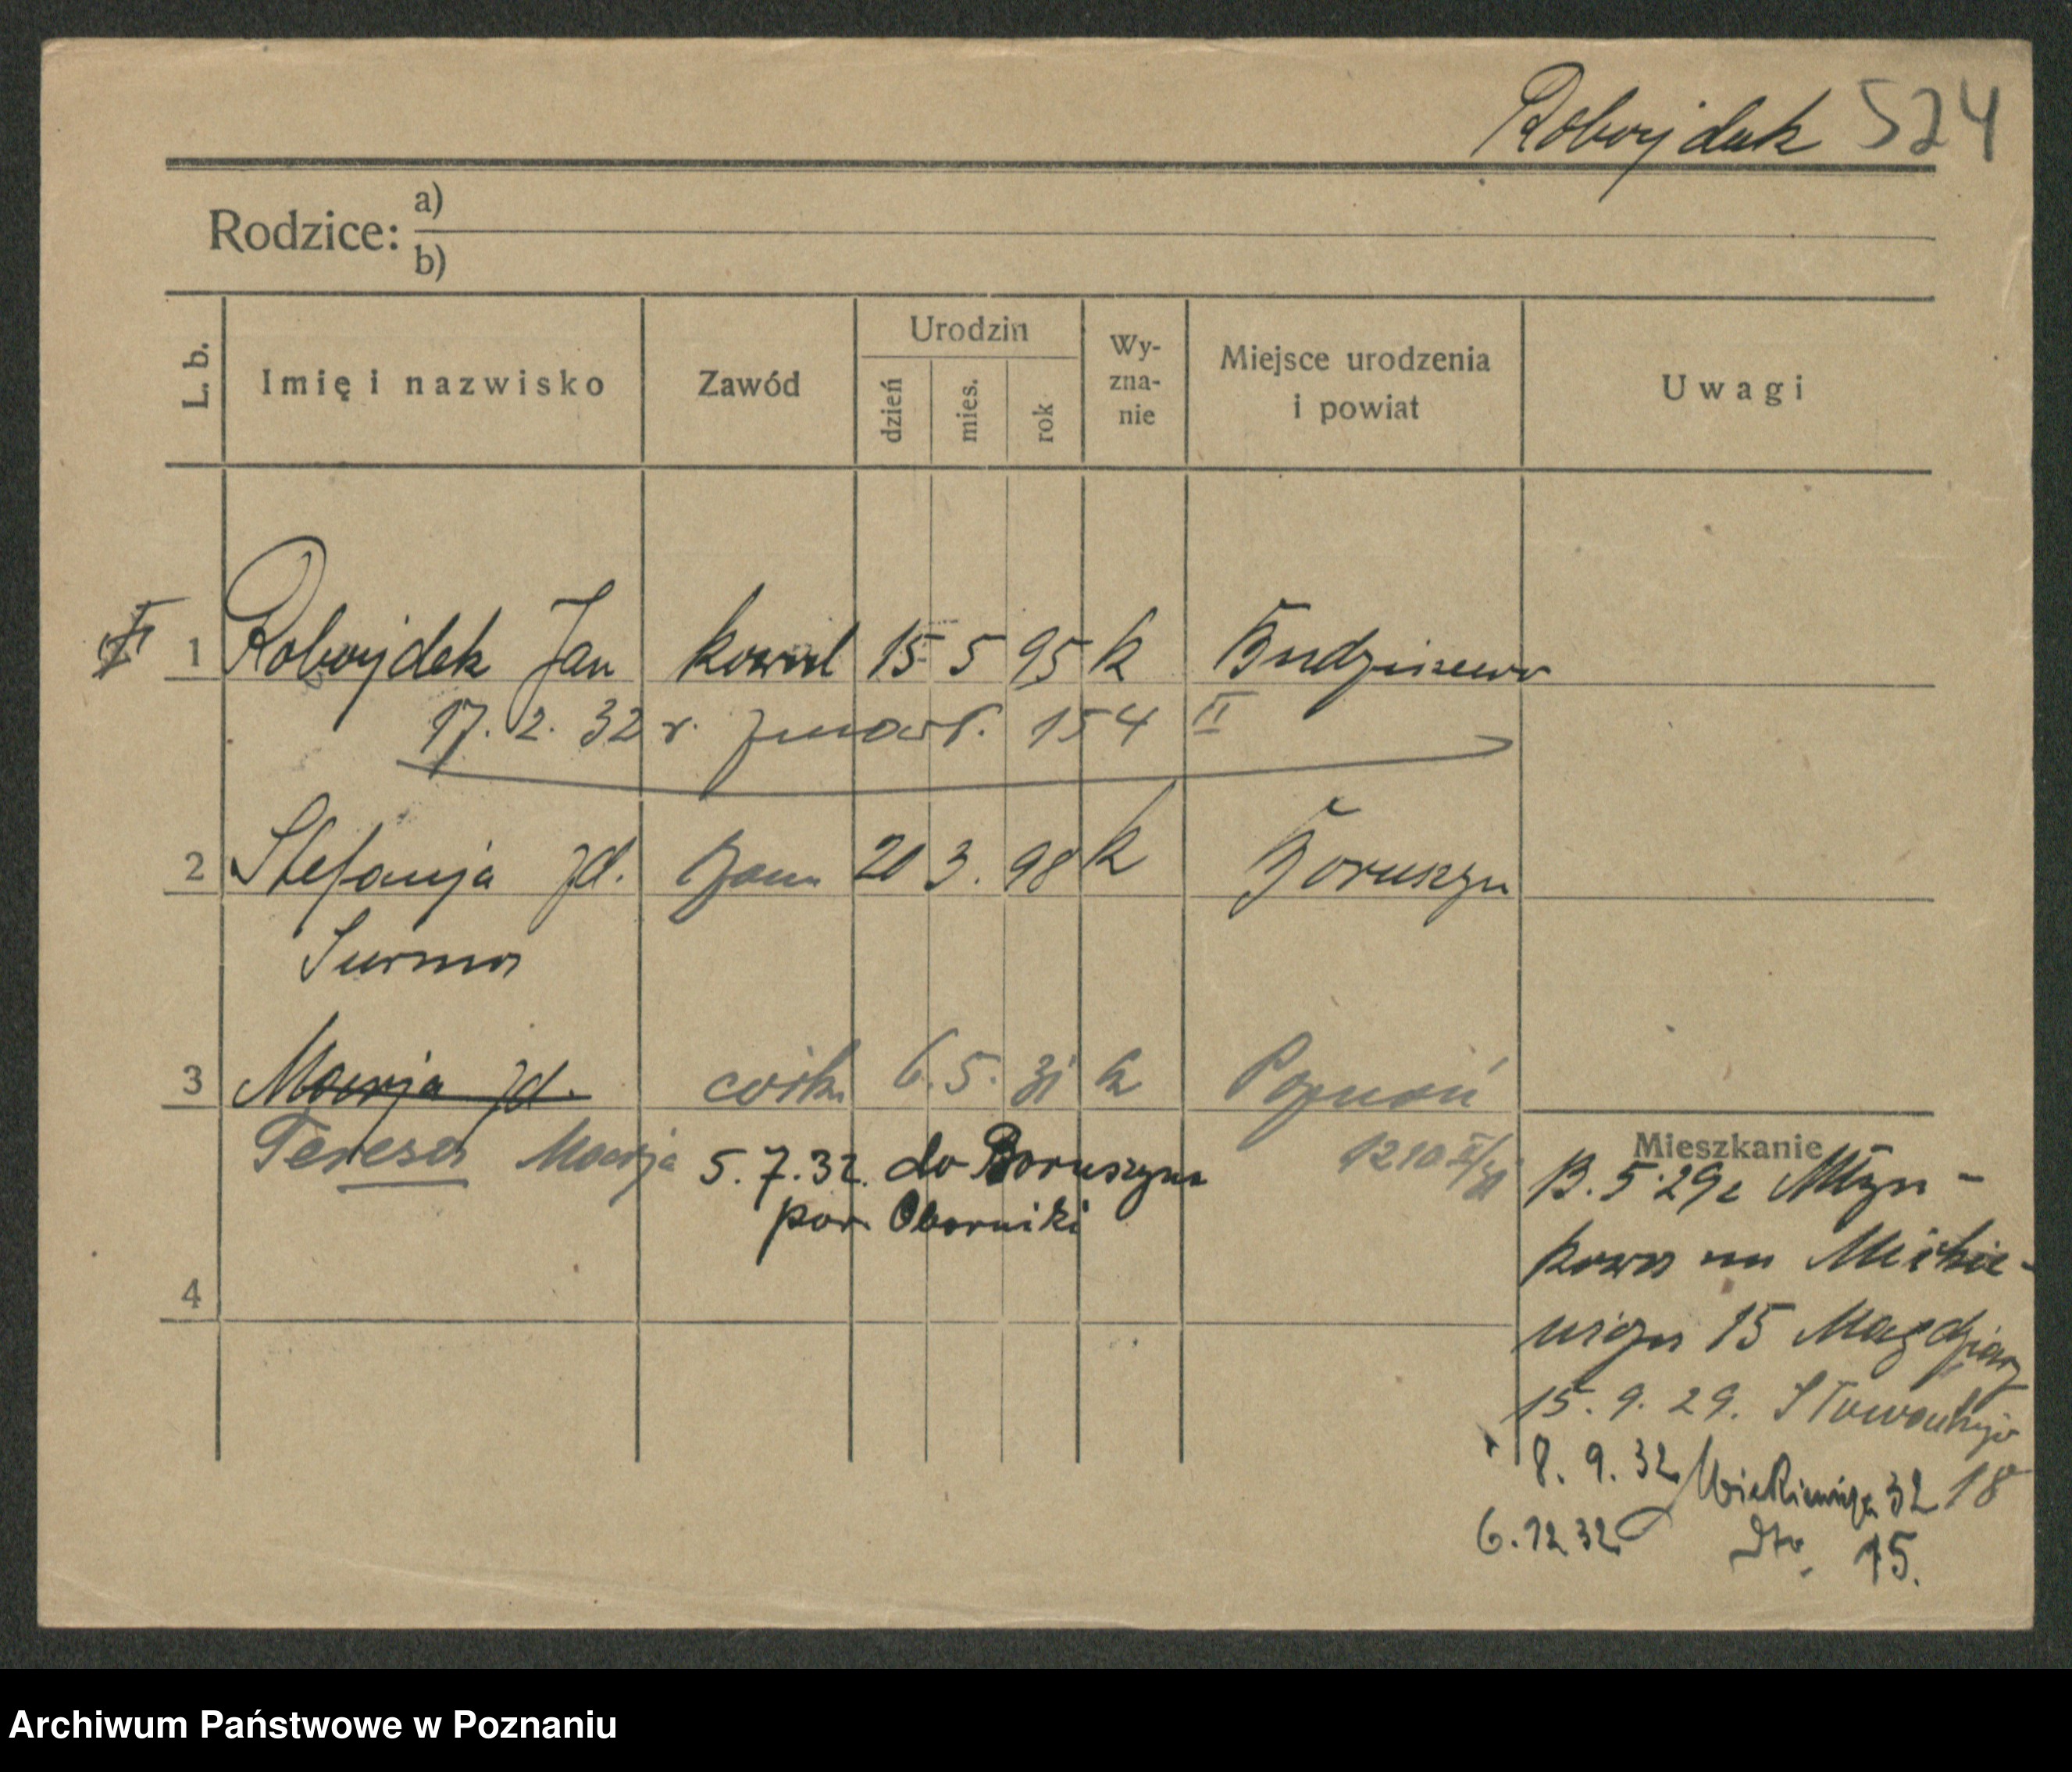 Robojdek 524
Rodzice: a)
b)
L. b. Imię i nazwisko Zawód Urodzin dzień mies. rok Wy-zna-nie Miejsce urodzenia i powiat Uwagi
1 Robojdek Jan kowal 15 5 95 k Budziszewo
17. 2. 32 r. zmarł. 154 II
2 Stefanja jd. żona 20 3. 98 k Boruszyn
Surma
3 Marja jd. córk. 6. 5. 31 k Poznań
Teresa Marja 1210
5. 7. 32. do Boruszyna
pow. Oborniki
4
Mieszkanie
13. 5 29 z Młyn-
kowa na Mickie-
wicza 15
15. 9. 29. Słowackiego
18
8. 9. 32 Mickiewicza 32
6. 12 32 dto. 15.
Archiwum Państwowe w Poznaniu